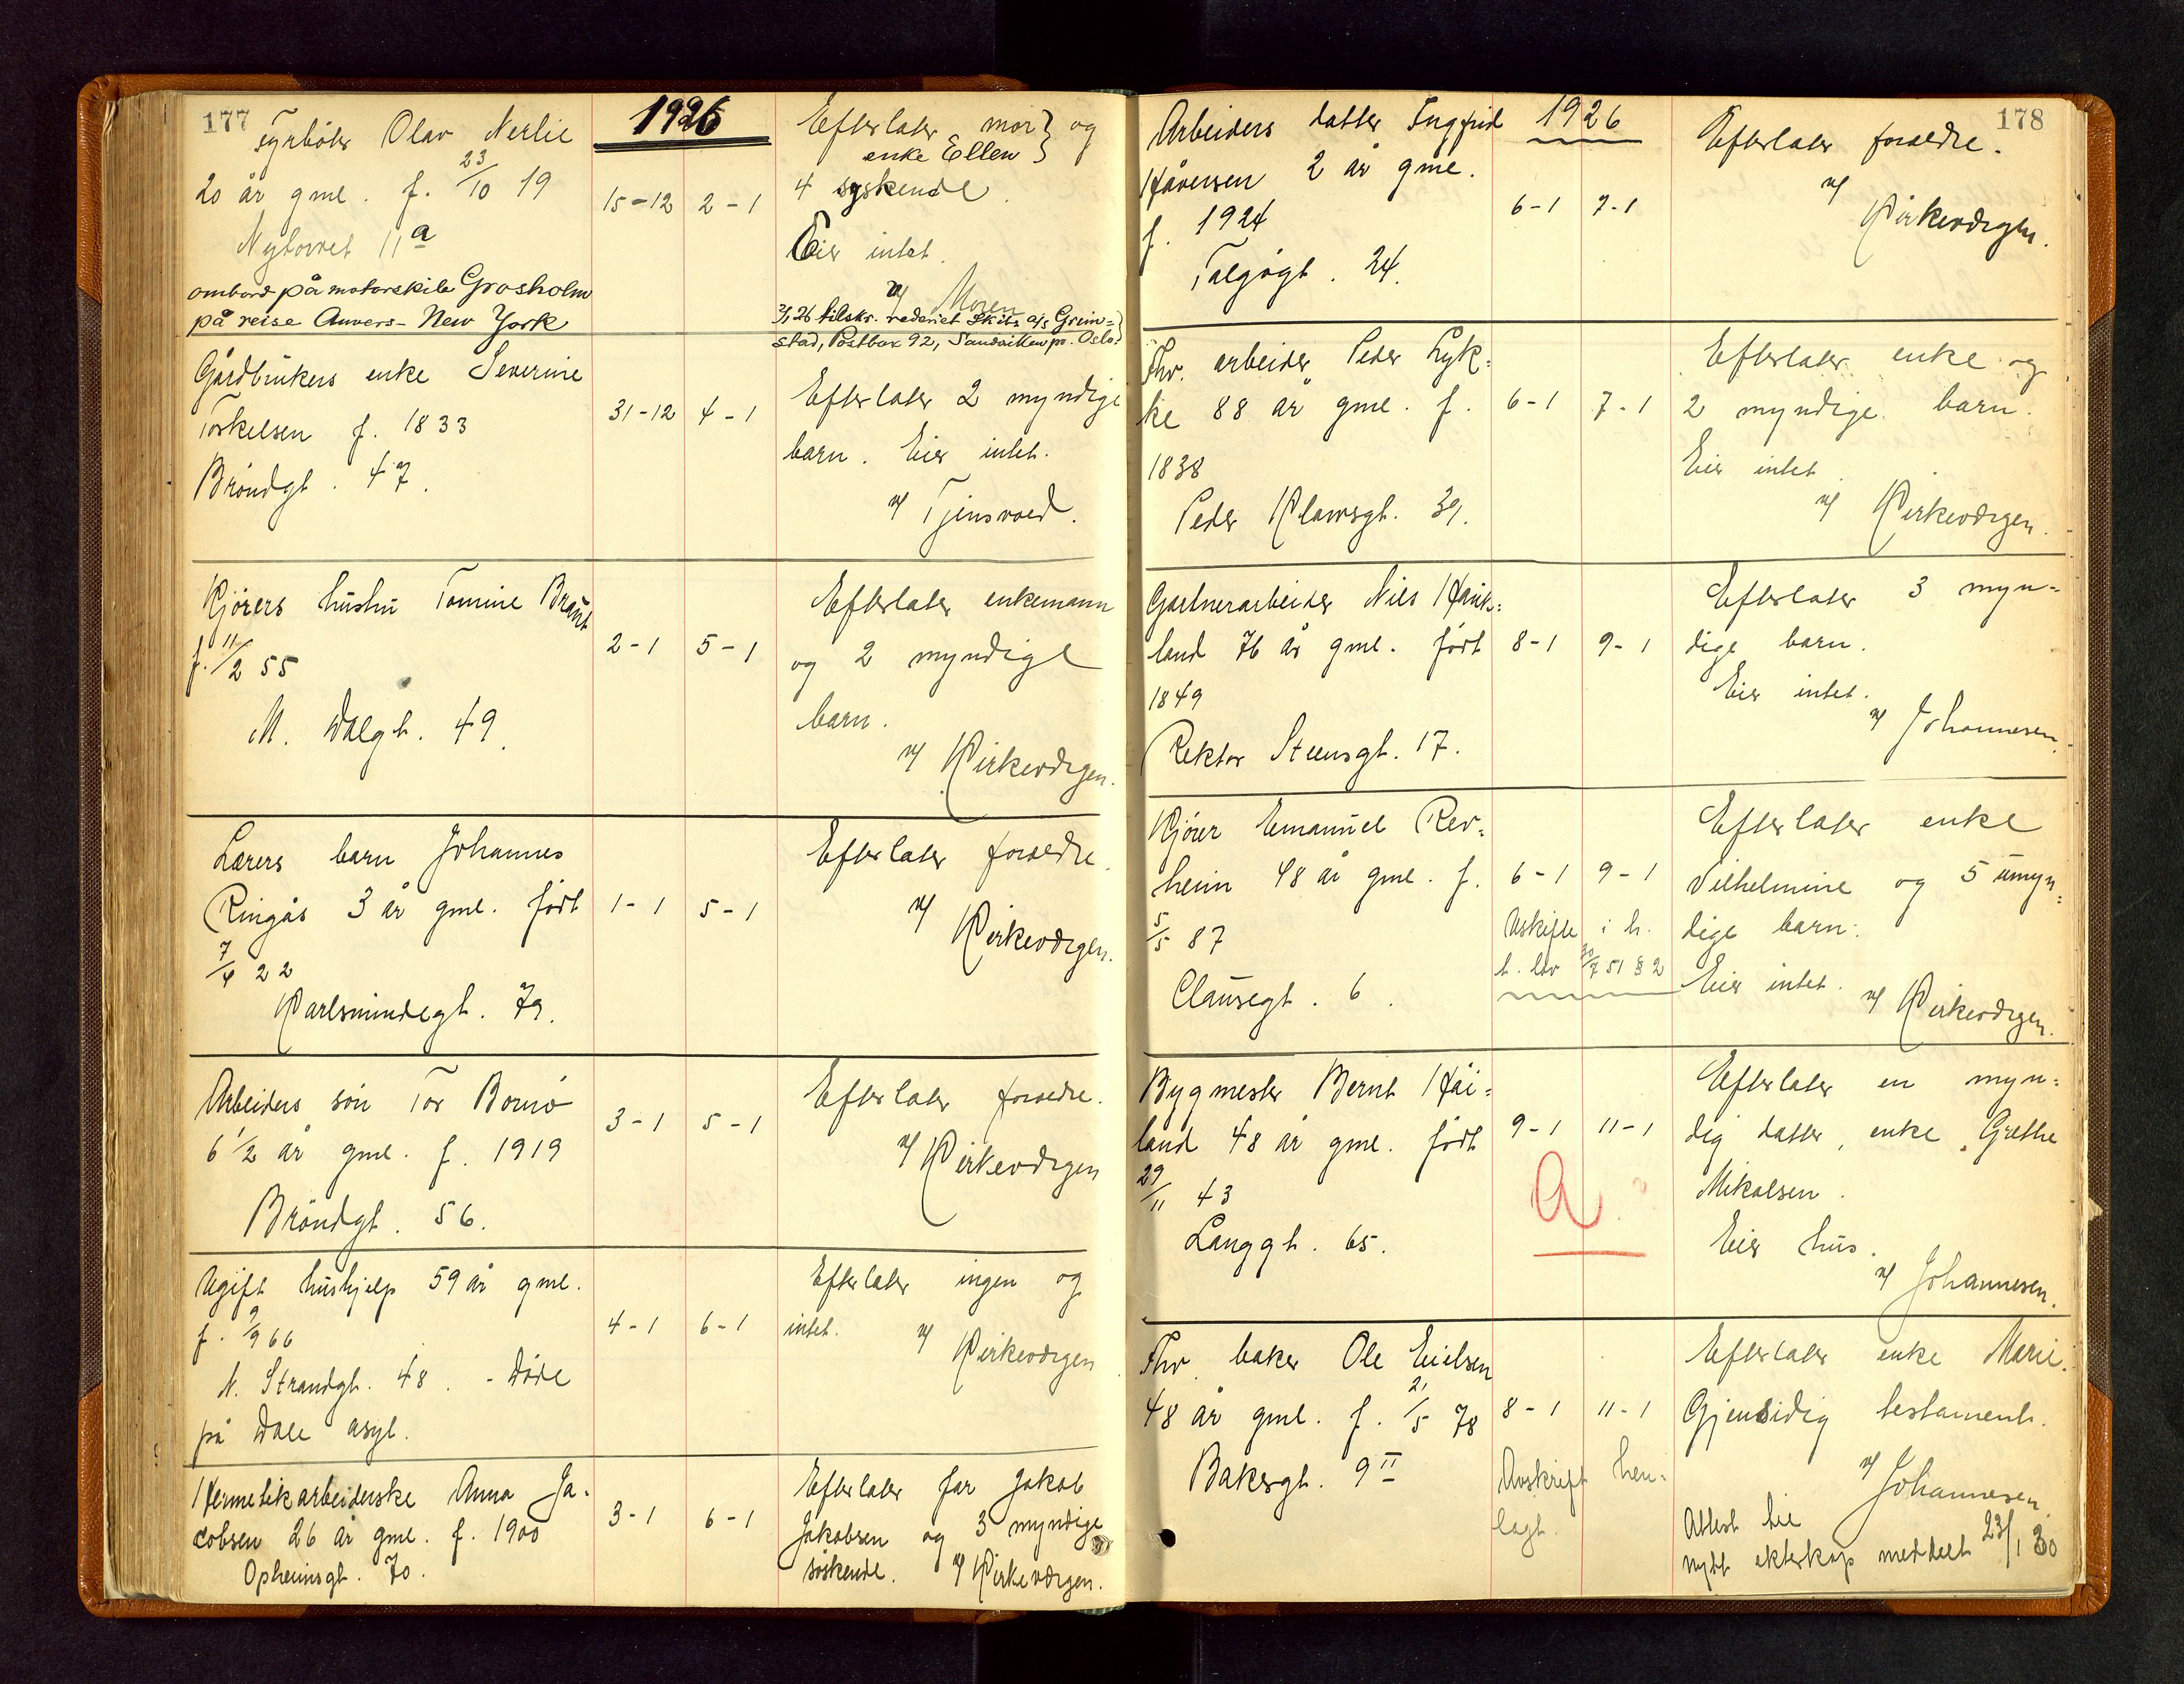 177
Fyrbøter Olav Nerlie
20 år gml. f. 23/10 19
Nytorvet 11a
ombord på motorskib Grosholm
på reise Anvers - New York
1926
15-12 2-1
Efterlater mor og
enke Ellen
4 syskende.
Eier intet.
v/ Moren
2/1 26 tilskr. rederiet Skibs a/s Grein=
stad, Postbox 92, Sandviken pr. Oslo.
Gårdbrukers enke Severine
Torkelsen f. 1833
Brøndgt. 47.
31-12 4-1
Efterlater 2 myndige
barn. Eier intet.
v/ Tjensvoed.
Kjørers hustru Tomine Braut
f. 11/2 55
N. Dalgt. 49.
2-1 5-1
Efterlater enkemann
og 2 myndige
barn.
v/ Kirkevergen.
Lærers barn Johannes
Ringås 3 år gml. født
7/4 22
Karlsmindegt. 79.
1-1 5-1
Efterlater foreldre.
v/ Kirkevergen.
Arbeiders søn Tor Bornø
6 1/2 år gml. f. 1919
Brøndgt. 56.
3-1 5-1
Efterlater foreldre.
v/ Kirkevergen
Ugift hushjelp 59 år gml.
f. 9/9 66
N. Strandgt. 48. - Døde
på Dale asyl.
4-1 6-1
Efterlater ingen og
intet. v/ Kirkevergen
Hermetikarbeiderske Anna Ja-
cobsen 26 år gml. f. 1900
Opheimsgt. 70.
3-1 6-1
Efterlater far Jakob
Jakobsen og 3 myndige
søskende. v/ Kirkevergen.
178
Arbeiders datter Ingfrid
Håversen 2 år gml.
f. 1924
Talgøgt. 24.
1926
6-1 7-1
Efterlater foreldre.
v/ Kirkevergen.
Fhv. arbeider Peder Lyk=
ke 88 år gml. f.
1838
Peder Klowsgt. 39.
6-1 7-1
Efterlater enke og
2 myndige barn.
Eier intet.
v/ Kirkevergen.
Gartnerarbeider Nils Hauk=
land 76 år gml. født
1849
Rektor Steensgt. 17.
8-1 9-1
Efterlater 3 myn=
dige barn.
Eier intet.
v/ Johannesen.
Kjører Emanuel Rev=
heim 48 år gml. f.
5/5 87
Clausegt. 6.
6-1 9-1
Uskifte i h.
t. lov 30/7 51 § 2
Efterlater enke
Vilhelmine og 5 umyn=
dige barn.
Eier intet. v/ Kirkevergen.
Bygmester Bernt Håi=
land 48 år gml. født
29/11 43
Langgt. 65.
9-1 11-1
a
Efterlater en myn=
dig datter, enke Grethe
Mikalsen.
Eier hus.
v/ Johannesen.
Fhv. baker Ole Eielsen
48 år gml. f. 21/5 78
Bakergt. 9 II
8-1 11-1
Avskrift hen=
lagt.
Efterlater enke Marie.
Gjensidig testament.
v/ Johannesen.
Attest til
nytt ekteskap meddelt 23/1 30